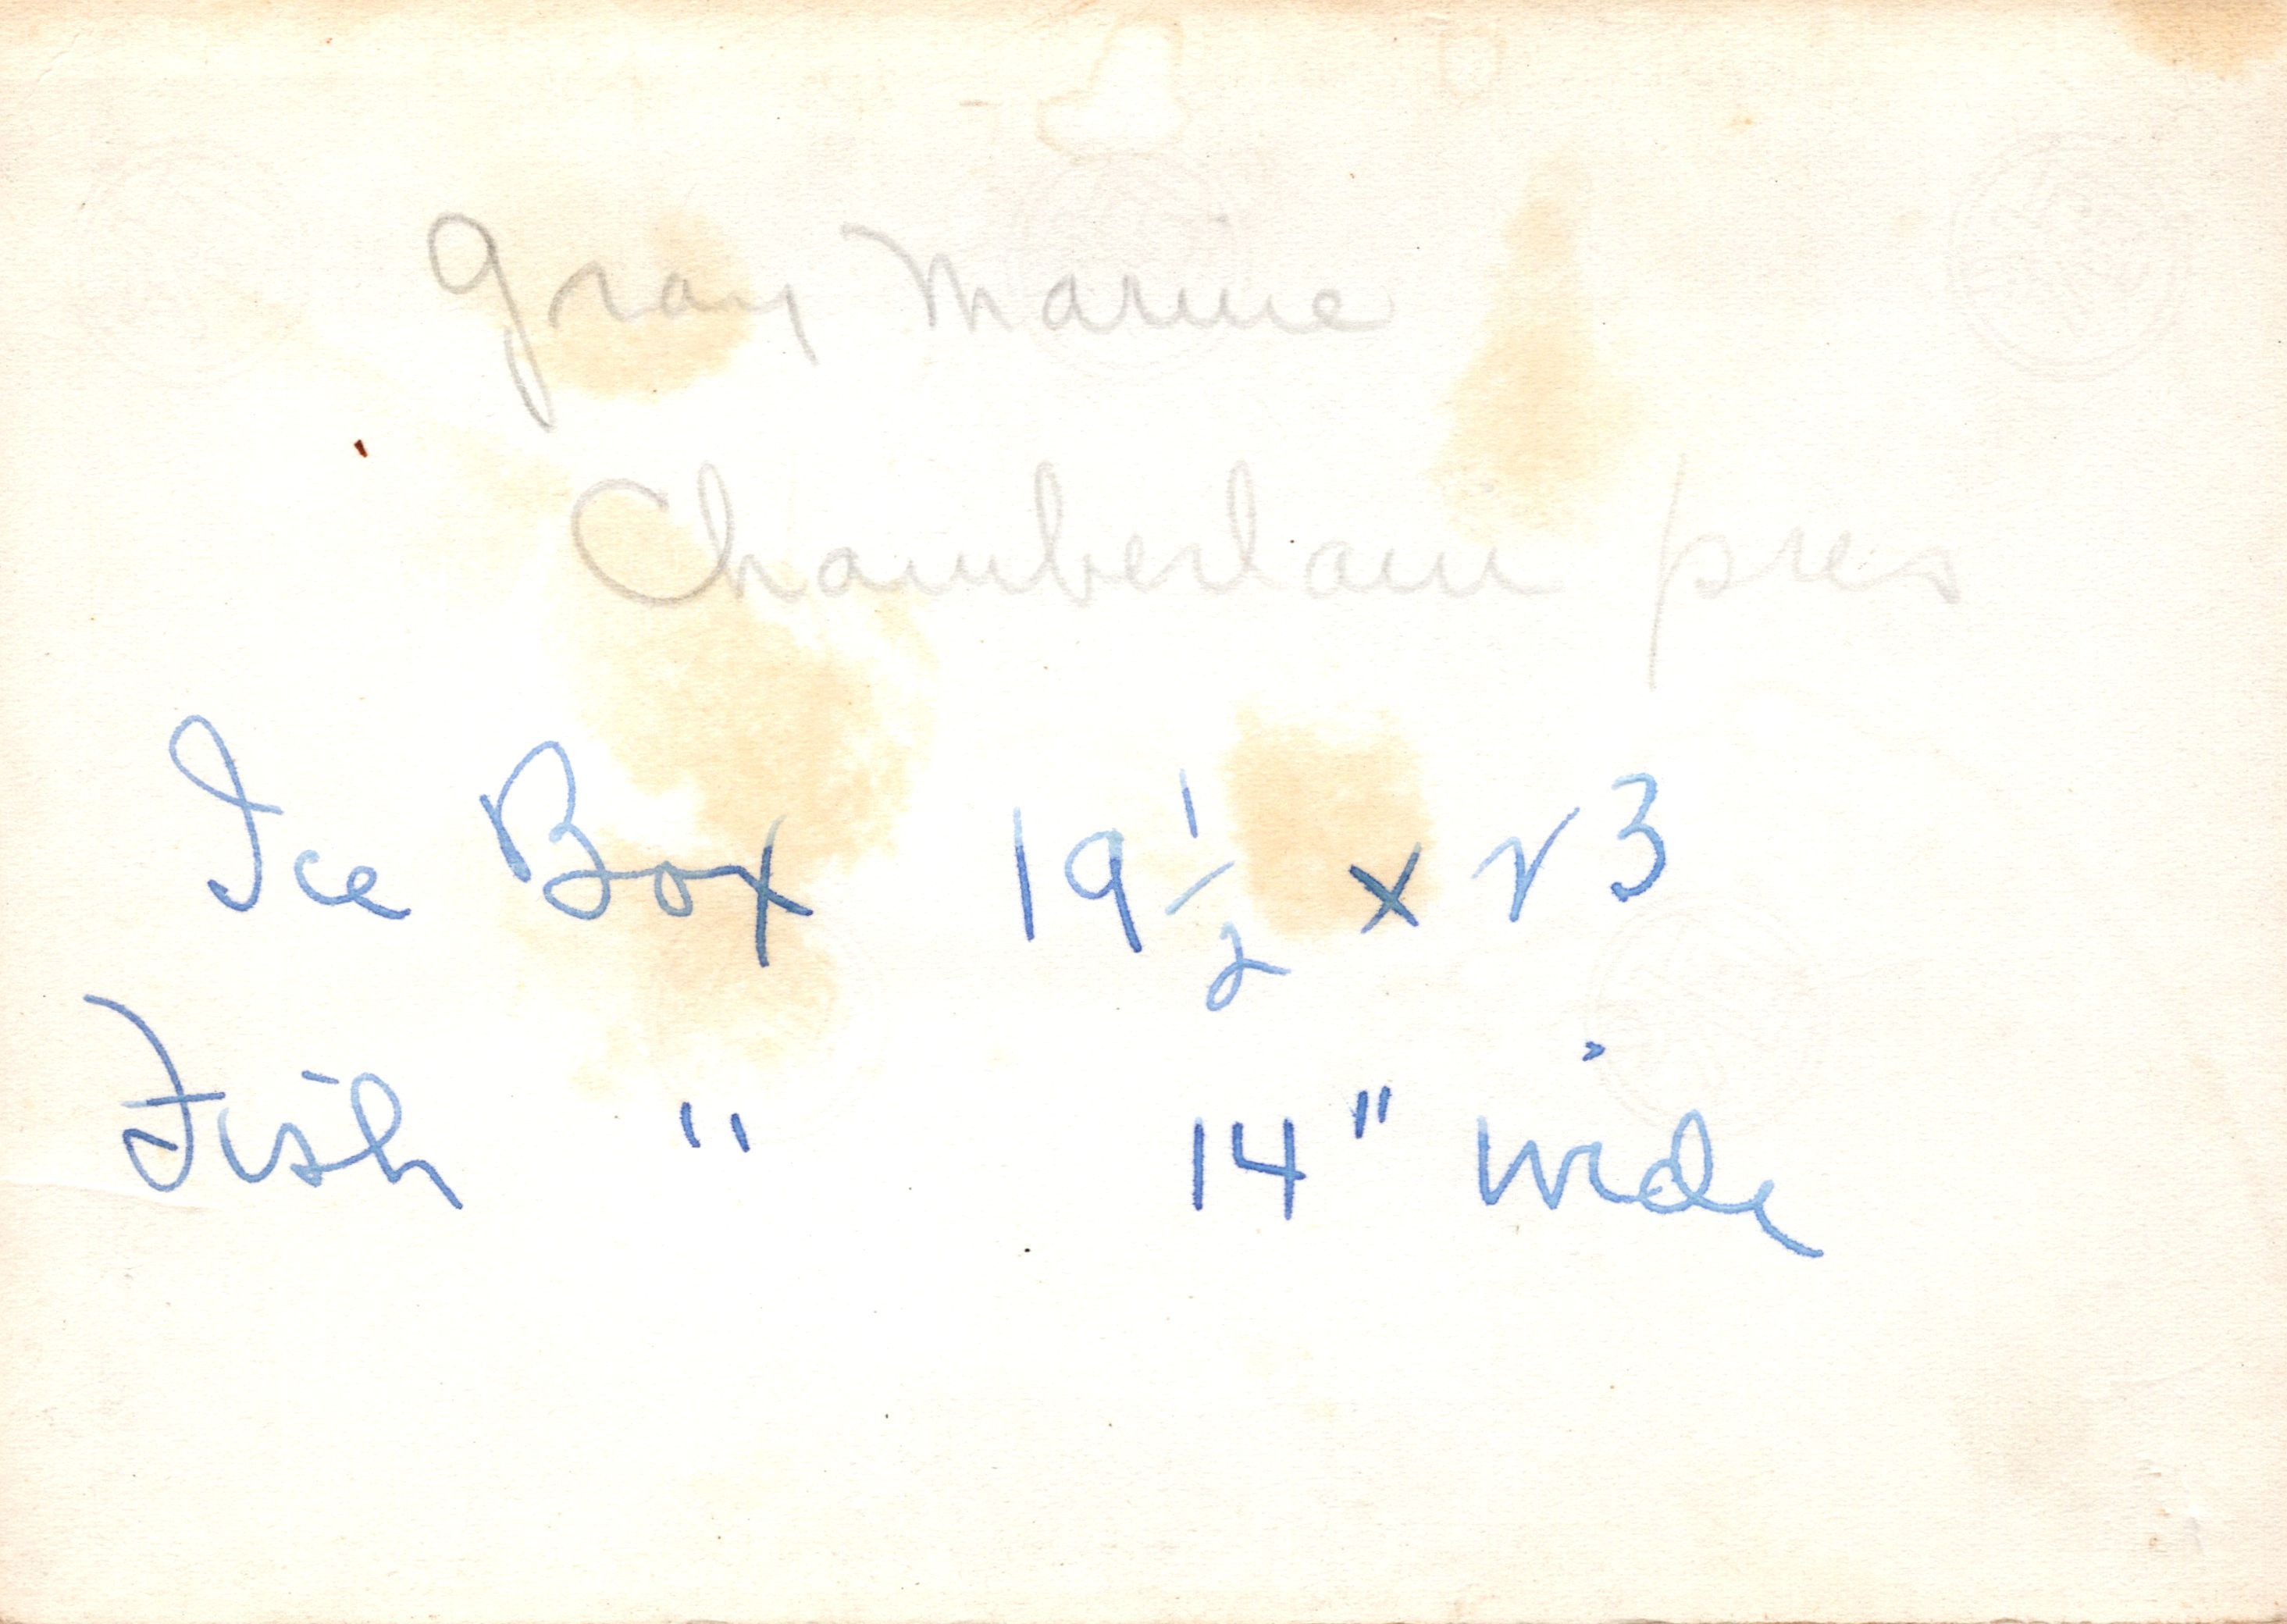 Gray Marine
Chamberlain pres
Ice Box 19 1/2 x 23
Fish " 14" wide